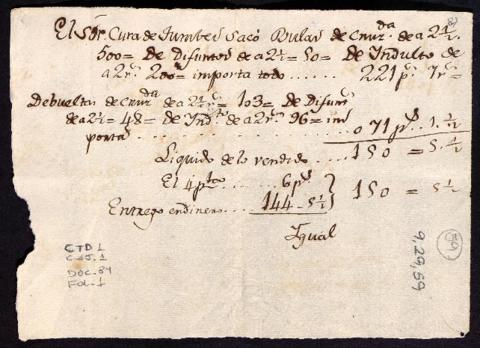 El Sor Cura de Tumbes sacó Bulas de Cruzda de a 2½ rs
500= de Difuntos de a 2½= 50= de Indulto de
a 2 rs 200= importa todo ...... 221 ps 7 rs=
Debueltas de Cruzda de a 2½ rs= 103= de Difuns
de a 2½= 48= de Indto de a 2 rs 96= im
porta ........ 071 ps 1½
Liquido de lo vendido .... 150 = 5½
El 4 pto ..... 6 ps } 150 = 5½
Entrego en dinero ... 144-5½
Igual
CTD 1
DOC. 84
Fol. 1
59
9,29,59